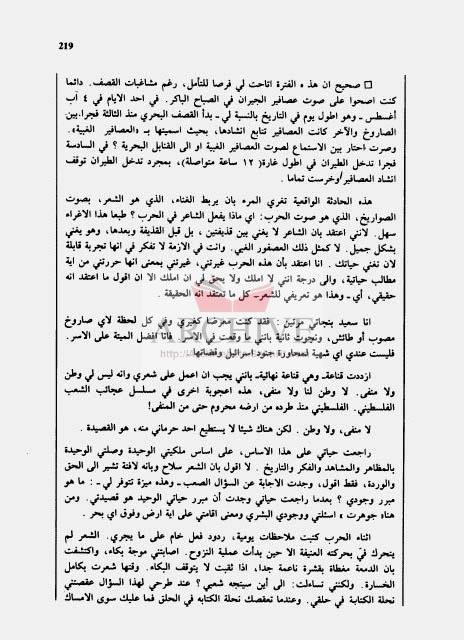 219
□ صحيح ان هذه الفترة اتاحت لي فرصا للتأمل، رغم مشاغبات القصف. دائما
كنت اصحوا على صوت عصافير الجيران في الصباح الباكر. في احد الايام في ٤ آب
أغسطس ـ وهو اطول يوم في التاريخ بالنسبة لي ـ بدأ القصف البحري منذ الثالثة فجرا. بين
الصاروخ والآخر كانت العصافير تتابع انشادها، بحيث اسميتها بـ «العصافير الغبية».
وصرت احتار بين الاستماع لصوت العصافير الغبية او الى القنابل البحرية ؟ في السادسة
فجرا تدخل الطيران في اطول غارة (١٢ ساعة متواصلة)، بمجرد تدخل الطيران توقف
انشاد العصافير وخرست تماما .
هذه الحادثة الواقعية تغري المرء بان يربط الغناء، الذي هو الشعر، بصوت
الصواريخ، الذي هو صوت الحرب: اي ماذا يفعل الشاعر في الحرب ؟ طبعا هذا الاغراء
سهل. لانني اعتقد بأن الشاعر لا يغني بين قذيفتين ، بل قبل القذيفة وبعدها، وهو يغني
بشكل جميل. لا كمثل ذلك العصفور الغبي. وانت في الازمة لا تفكر في انها تجربة قابلة
لان تغني حياتك . انا اعتقد بأن هذه الحرب غيرتني، غيرتني بمعنى انها حررتني من اية
مطالب حياتية، والى درجة انني لا املك ولا يحق لي ان املك الا ان اقول ما اعتقد انه
حقيقي، أي ـ وهذا هو تعريفي للشعر ـ كل ما تعتقد انه الحقيقة .
انا سعيد بنجاتي مرتين . فقد كنت معرضا كغيري وفي كل لحظة لاي صاروخ
مصوب أو طائش، ونجوت ثانية بانني ما وقعت في الاسر. فانا افضل الميتة على الاسر.
فليست عندي اي شهية لمحاورة جنود اسرائيل وقضاتها.
ARCHIVE
ازددت قناعة ـ وهي قناعة نهائية ـ بانني يجب ان اعمل على شعري وانه ليس لي وطن
ولا منفى. لا وطن لنا ولا منفى، هذه اعجوبة اخرى في مسلسل عجائب الشعب
الفلسطيني. الفلسطيني منذ طرده من ارضه محروم حتى من المنفى!
لا منفى، ولا وطن . لكن هناك شيئا لا يستطيع احد حرماني منه، هو القصيدة .
راجعت حياتي على هذا الاساس، على اساس ملكيتي الوحيدة وصلتي الوحيدة
بالمظاهر والمشاهد والفكر والتاريخ . لا اقول بان الشعر سلاح وبانه لافتة تشير الى الحق
والوردة، فقط اقول، وجدت الاجابة عن السؤال الصعب ـ وهذه ميزة تتوفر لي ـ : ما هو
مبرر وجودي ؟ بعدما راجعت حياتي وجدت أن مبرر حياتي الوحيد هو قصيدتي. ومن
هناء جوهرت » اسئلتي ووجودي البشري ومعنى اقامتي على اية ارض وفوق اي بحر .
اثناء الحرب كتبت ملاحظات يومية، ردود فعل خام على ما يجري. الشعر لم
يتحرك في بحركته العنيفة الا حين بدأت عملية النزوح. اصابتني موجة بكاء، واكتشفت
بان الدمعة مغطاة بقشرة ناعمة جدا، اذا ثقبت لا يتوقف البكاء. وقتها شعرت بكامل
الخسارة. ولكنني تساءلت: الى أين سيتجه شعبي؟ عند طرحي لهذا السؤال عقصتني
نحلة الكتابة في حلقي. وعندما تعقصك نحلة الكتابه في الحلق فما عليك سوى الامساك